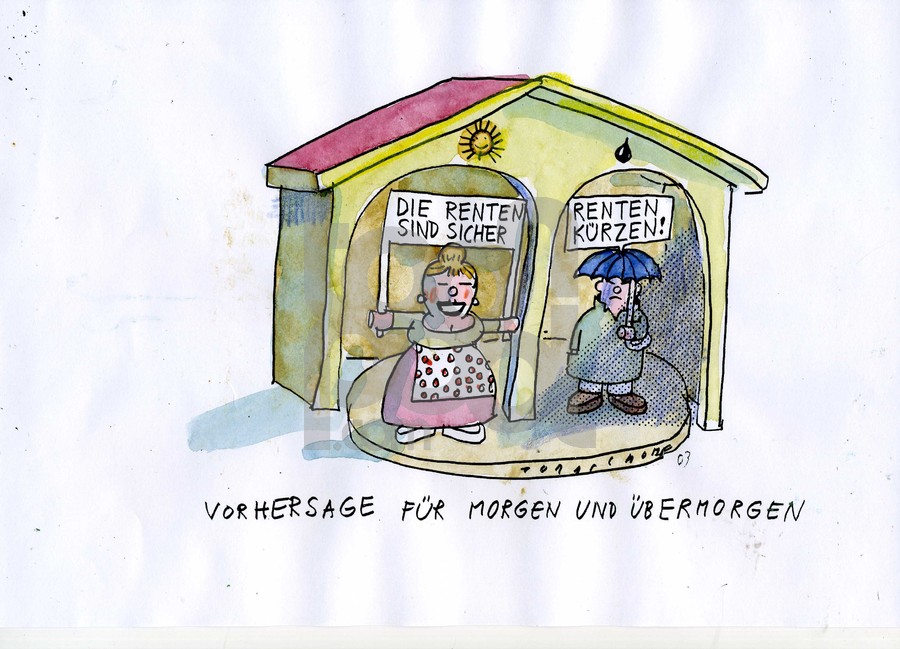 DIE RENTEN
SIND SICHER
RENTEN
KÜRZEN!
VORHERSAGE FÜR MORGEN UND ÜBERMORGEN
03